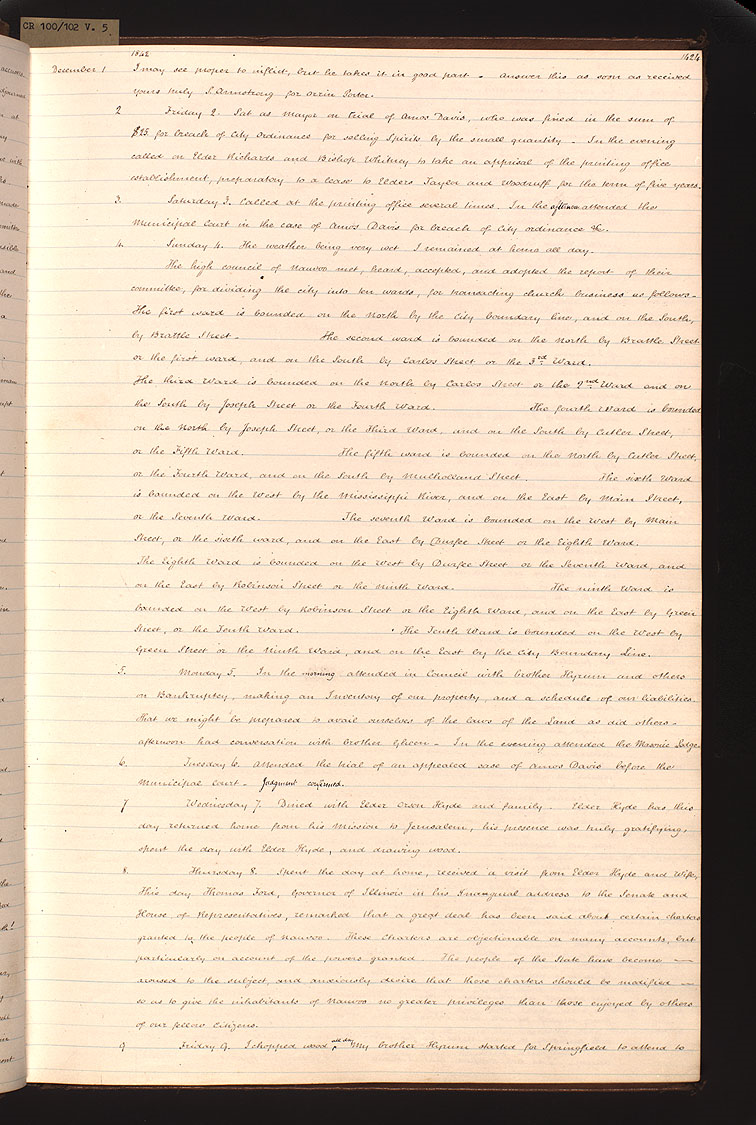 CR 100/102 V. 5
1842
1424
December 1 I may see proper to inflict, but he takes it in good part - answer this as soon as received
yours truly S. Armstrong for Orrin Porter.
2 Friday 2. Sat as Mayor on trial of Amos Davis, who was fined in the sum of
$25 for breach of City Ordinance for selling Spirits by the small quantity - In the evening
called on Elder Richards and Bishop Whitney to take an apprisal of the printing office
establishment, preparatory to a lease to Elders Taylor and Woodruff for the term of five years.
3. Saturday 3. Called at the printing office several times. In the afternoon attended the
Municipal Court in the case of Amos Davis for breach of City ordinance &c.
4. Sunday 4. The weather being very wet I remained at home all day.
The high council of Nauvoo met, heard, accepted, and adopted the report of their
committee, for dividing the city into ten wards, for transacting church business as follows-
The first ward is bounded on the North by the City boundary line, and on the South,
by Brattle Street - The second ward is bounded on the North by Brattle Street
or the first ward, and on the South by Carlos Street or the 3rd Ward.
The third Ward is bounded on the North by Carlos Street or the 2nd Ward and on
the South by Joseph Street or the Fourth Ward. The fourth Ward is bounded
on the North by Joseph Street, or the Third Ward, and on the South by Cutler Street,
or the Fifth Ward. The fifth ward is bounded on the North by Cutler Street,
or the Fourth Ward, and on the South by Mulholland Street. The sixth Ward
is bounded on the West by the Mississippi River, and on the East by Main Street,
or the Seventh Ward. The seventh Ward is bounded on the West by Main
Street, or the sixth ward, and on the East by Durfee Street or the Eighth Ward.
The Eighth Ward is bounded on the West by Durfee Street or the Seventh Ward, and
on the East by Robinson Street or the ninth Ward. The ninth Ward is
bounded on the West by Robinson Street or the Eighth Ward, and on the East by Green
Street, or the Tenth Ward. The Tenth Ward is bounded on the West by
Green Street or the Ninth Ward, and on the East by the City Boundary Line.
5. Monday 5. In the morning attended in Council with brother Hyrum and others
on Bankruptcy, making an Inventory of our property, and a schedule of our liabilities
that we might be prepared to avail ourselves of the laws of the Land as did others -
afternoon had conversation with brother Green - In the evening attended the Masonic Lodge.
6. Tuesday 6. Attended the trial of an appealed case of Amos Davis before the
Municipal Court - Judgment confirmed.
7 Wednesday 7. Dined with Elder Orson Hyde and family - Elder Hyde has this
day returned home from his Mission to Jerusalem, his presence was truly gratifying,
spent the day with Elder Hyde, and drawing wood.
8. Thursday 8. Spent the day at home, received a visit from Elder Hyde and Wife,
This day Thomas Ford, Governor of Illinois in his Inaugural address to the Senate and
House of Representatives, remarked that a great deal has been said about certain charters
granted to the people of Nauvoo. These Charters are objectionable on many accounts, but
particularly on account of the powers granted. The people of the State have become —
aroused to the subject, and anxiously desire that those charters should be modified —
so as to give the inhabitants of Nauvoo no greater privileges than those enjoyed by others
of our fellow Citizens.
9 Friday 9. I chopped wood all day My brother Hyrum started for Springfield to attend to